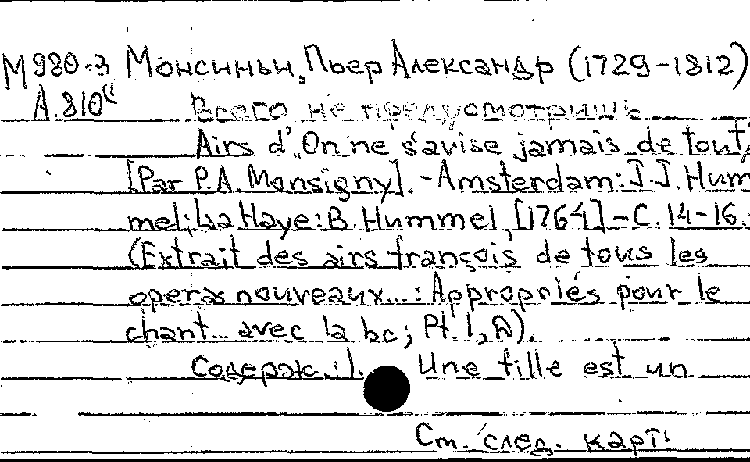 М 980-3 Монсиньи, Пьер Александр (1729-1812)
А.810
Всего не предусмотришь
Airs d', On ne s'avise jamais de tout,
[Par P.A. Monsigny]. - Amsterdam: J.J. Hum
mel; La Haye: B. Hummel, [1764] - C. 14-16.
(Extrait des airs françois de tous les
operas nouveaux...: Appropriés pour le
chant... avec la bc; Pt. 1,
Содерж.: 1. Une fille est un
См. след. карт.